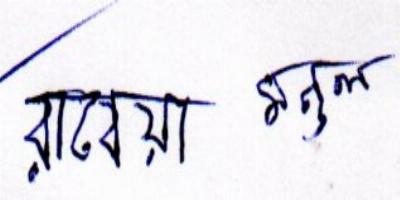 রাবেয়া মনুল